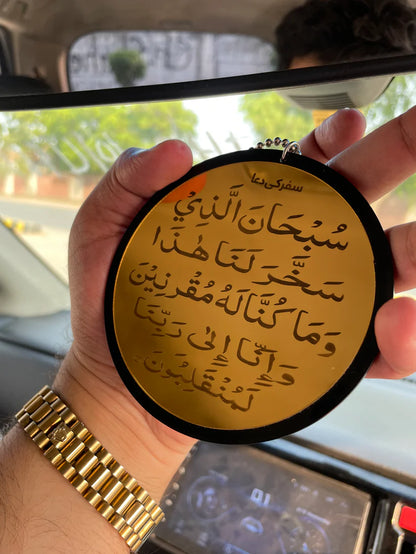 سفر کی دعا
سُبْحَانَ الَّذِيْ
سَخَّرَ لَنَا هٰذَا
وَمَا كُنَّا لَهُ مُقْرِنِيْنَ
وَإِنَّا إِلىٰ رَبِّنَا
لَمُنْقَلِبُونَ